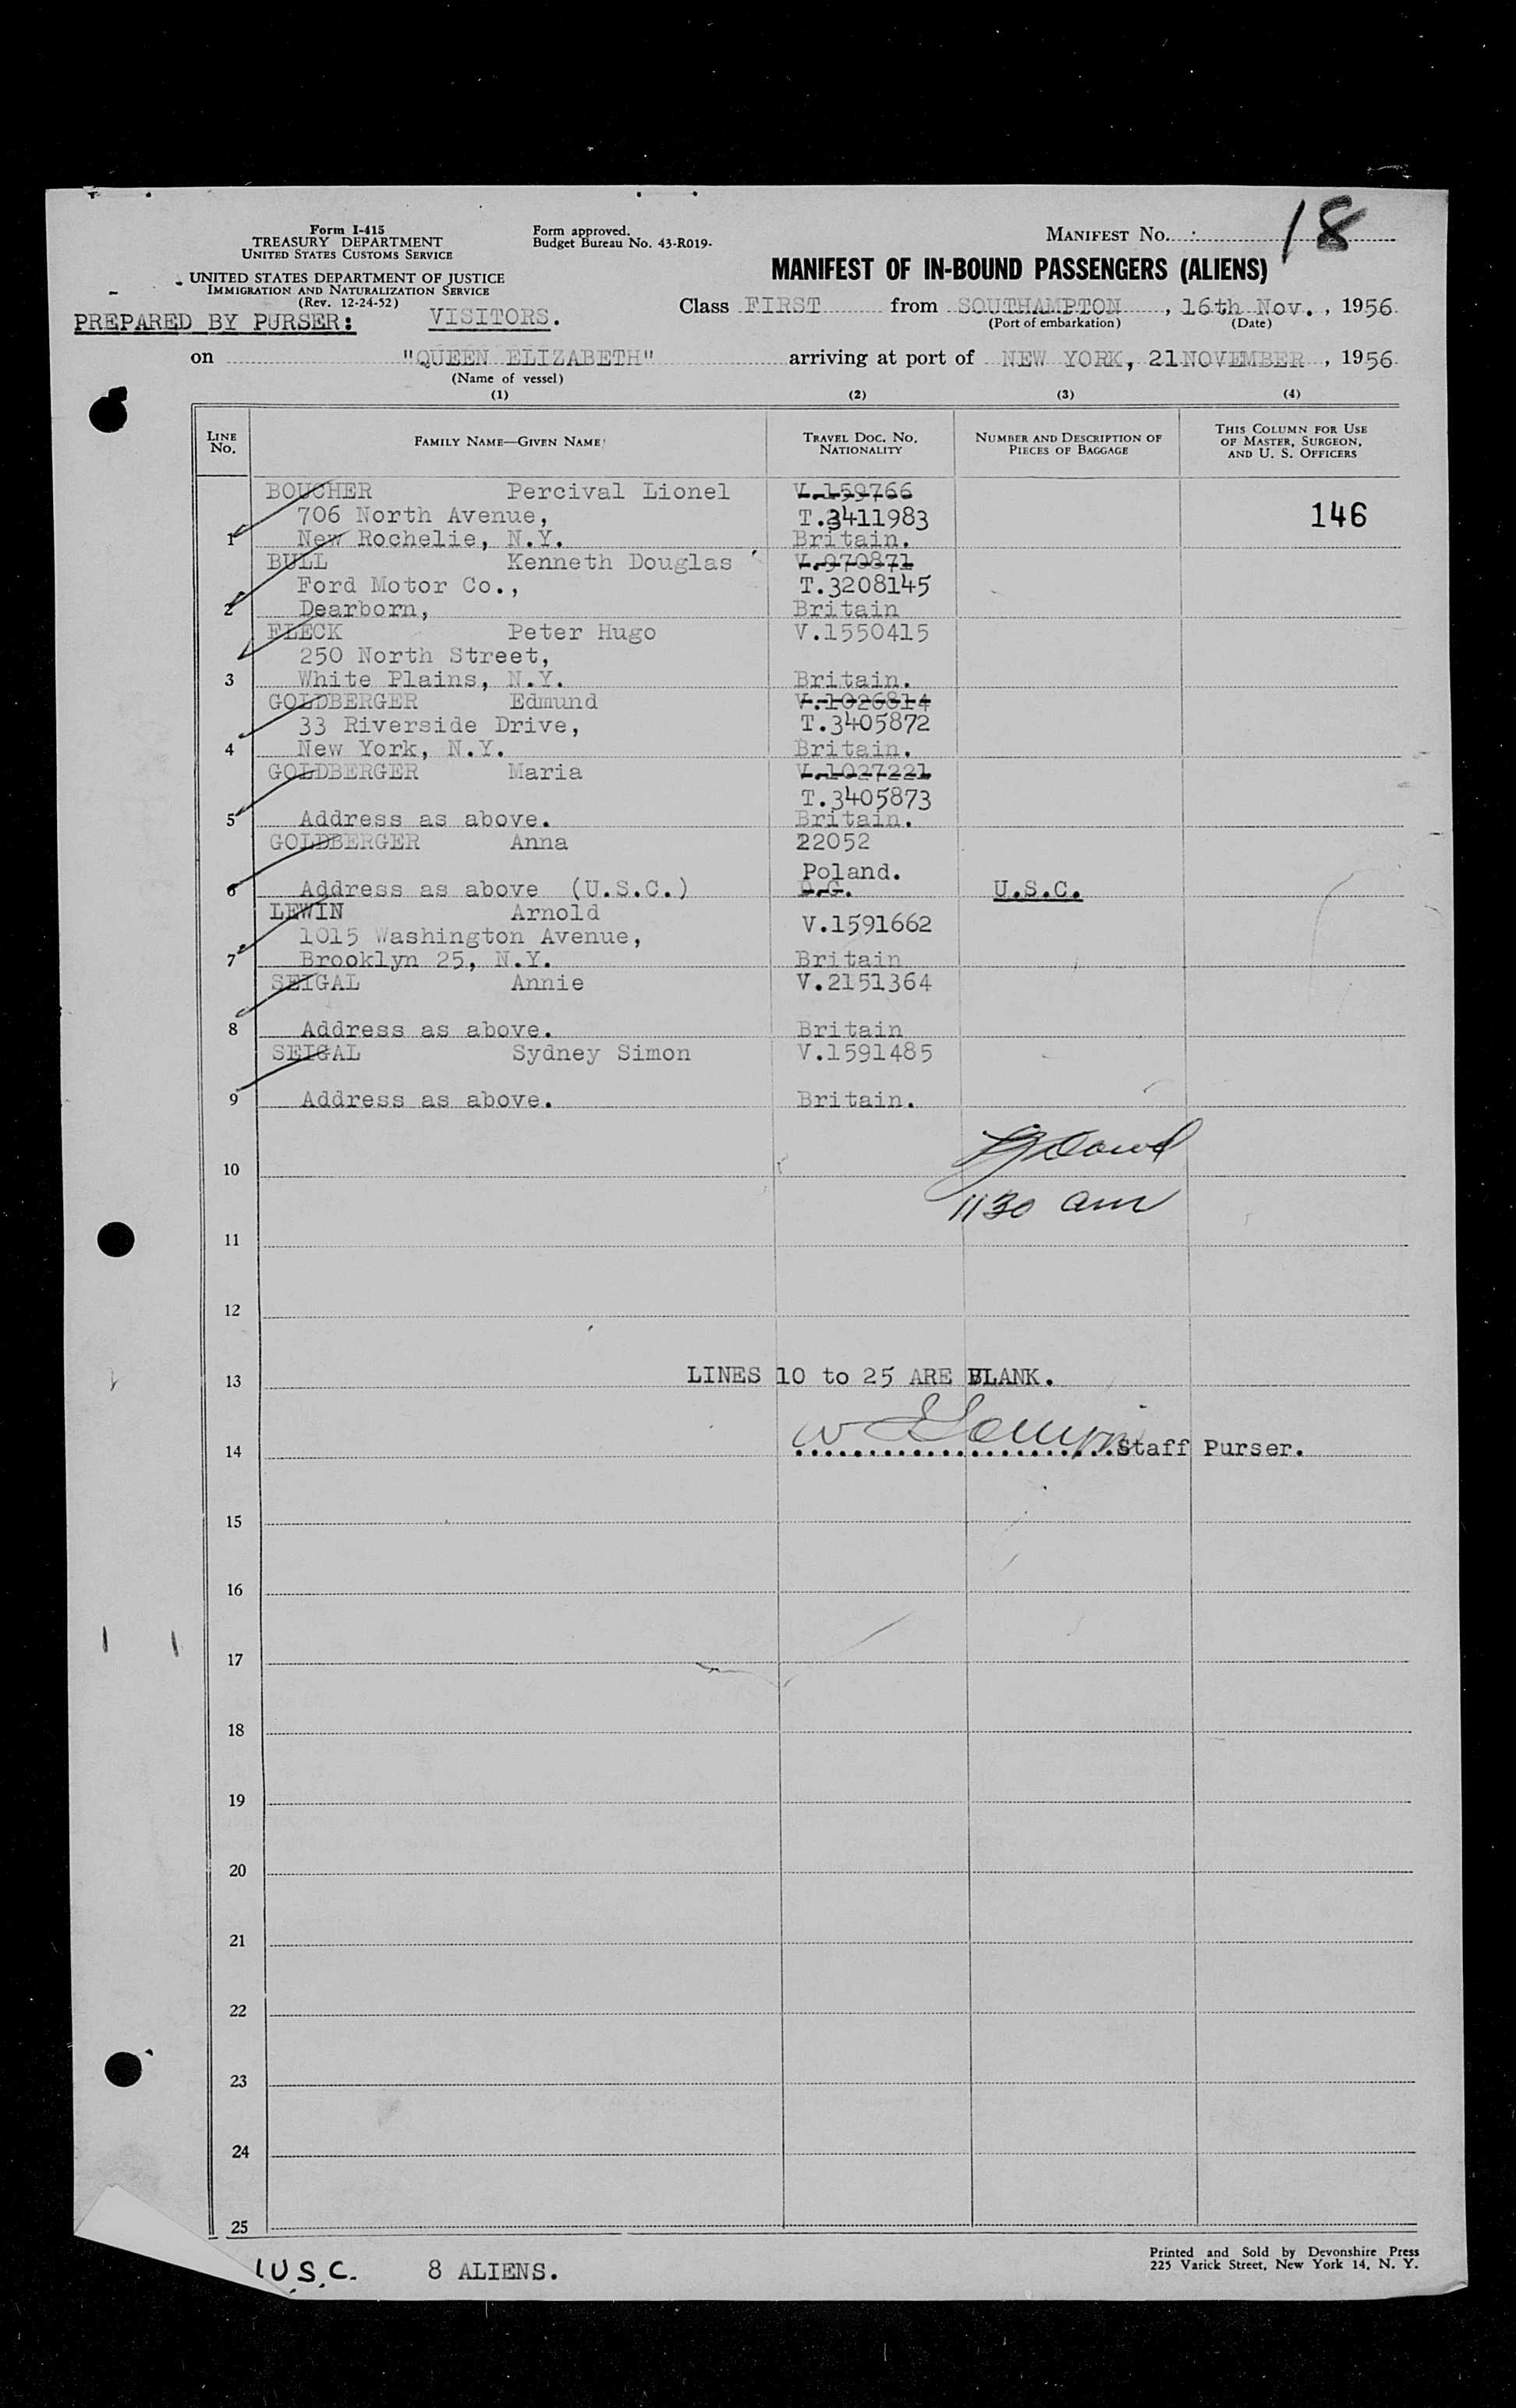 18
Form I-415
TREASURY DEPARTMENT
UNITED STATES CUSTOMS SERVICE
Form approved.
Budget Bureau No. 43-R019-
MANIFEST NO.
UNITED STATES DEPARTMENT OF JUSTICE
IMMIGRATION AND NATURALIZATION SERVICE
(Rev. 12-24-52)
MANIFEST OF IN-BOUND PASSENGERS (ALIENS)
PREPARED BY PURSER: VISITORS.
Class FIRST from SOUTHAMPTON, 16th Nov., 1956
(Port of embarkation) (Date)
on "QUEEN ELIZABETH" arriving at port of NEW YORK, 21 NOVEMBER, 1956
(Name of vessel)
(1) (2) (3) (4)
LINE NO. FAMILY NAME—GIVEN NAME TRAVEL DOC. NO. NATIONALITY NUMBER AND DESCRIPTION OF PIECES OF BAGGAGE THIS COLUMN FOR USE OF MASTER, SURGEON, AND U. S. OFFICERS
BOUCHER Percival Lionel V.159766
706 North Avenue, T.3411983 146
1 New Rochelie, N.Y. Britain.
BULL Kenneth Douglas V.970871
Ford Motor Co., T.3208145
2 Dearborn, Britain
FLECK Peter Hugo V.1550415
250 North Street,
3 White Plains, N.Y. Britain.
GOLDBERGER Edmund V.1026814
33 Riverside Drive, T.3405872
4 New York, N.Y. Britain.
GOLDBERGER Maria V.1027221
T.3405873
5 Address as above. Britain.
GOLDBERGER Anna 22052
Poland.
6 Address as above (U.S.C.) U.S.C.
LEWIN Arnold
1015 Washington Avenue, V.1591662
7 Brooklyn 25, N.Y. Britain
SEIGAL Annie V.2151364
8 Address as above. Britain
SEIGAL Sydney Simon V.1591485
9 Address as above. Britain.
10
1130 am
11
12
13 LINES 10 to 25 ARE BLANK.
14 Staff Purser.
15
16
17
18
19
20
21
22
23
24
25
1 U.S.C. 8 ALIENS.
Printed and Sold by Devonshire Press
225 Varick Street, New York 14, N. Y.